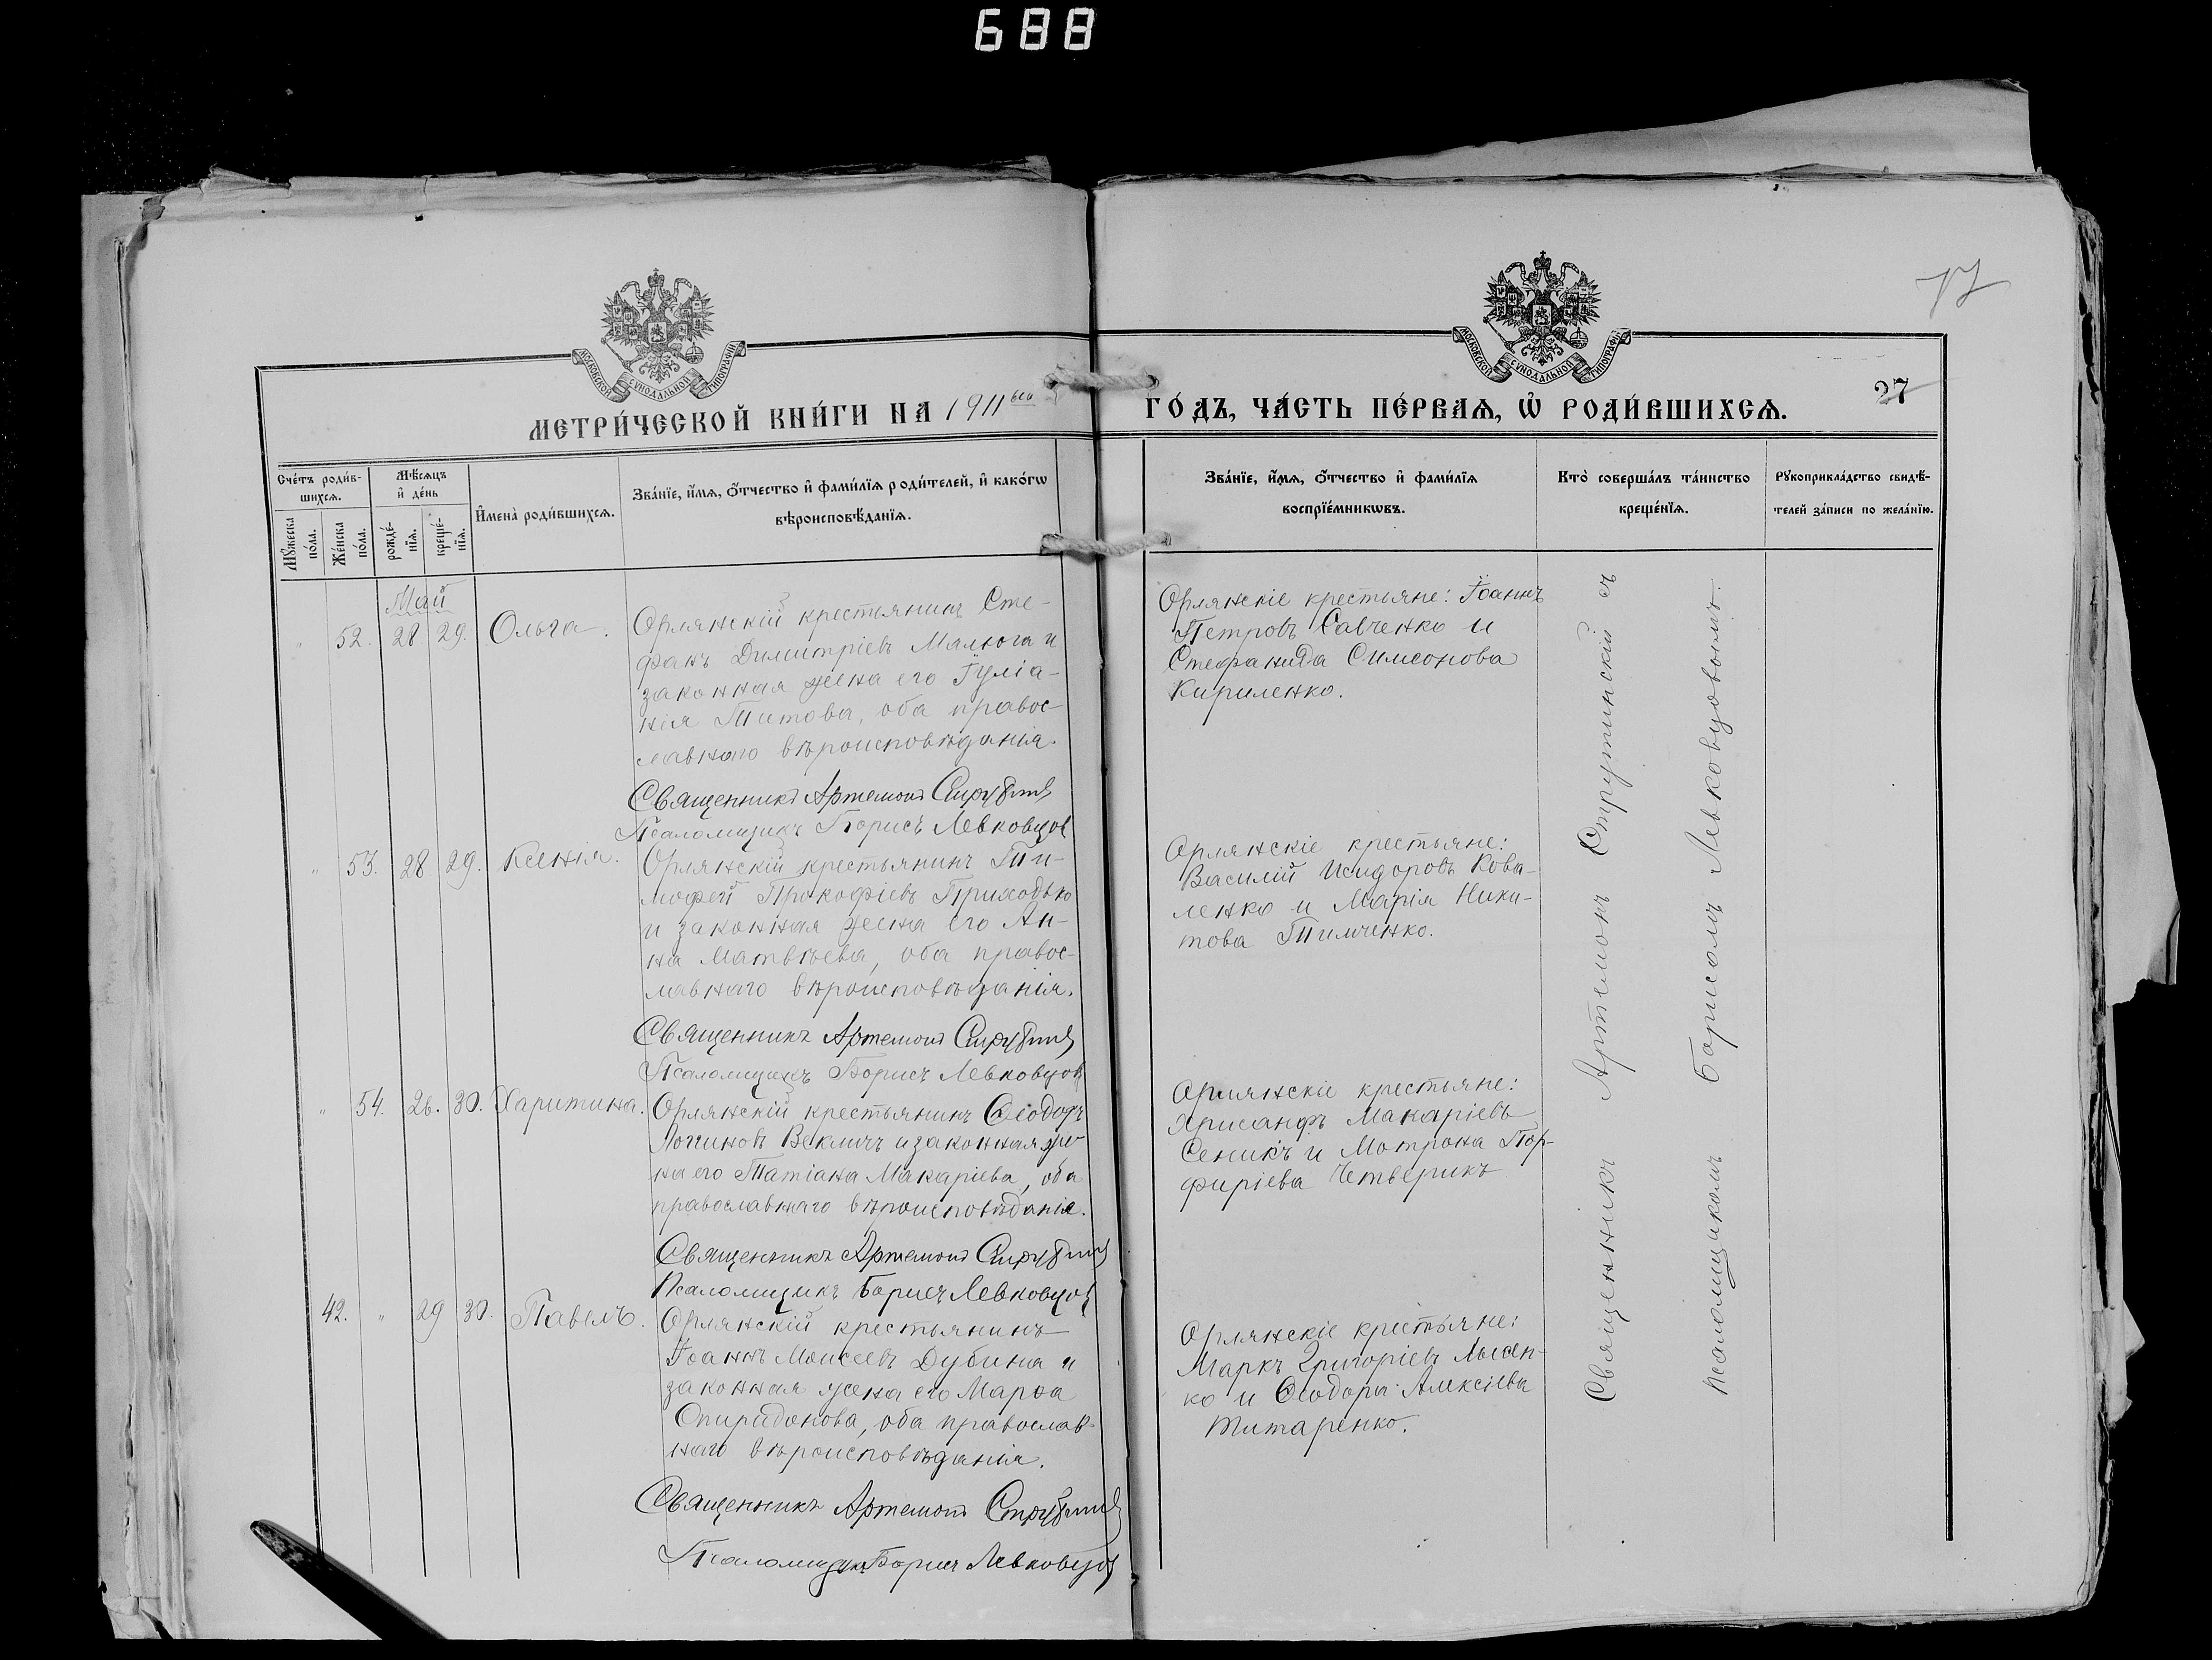 688
17
МОСКОВСКОЙ СѴНОДАЛЬНОЙ ТИПОГРАФІИ
МОСКОВСКОЙ СѴНОДАЛЬНОЙ ТИПОГРАФІИ
МЕТРИ́ЧЕСКОЙ КНИ́ГИ НА 1911
ГО́ДЪ, ЧА́СТЬ ПЕ́РВАѦ, Ѽ РОДИ́ВШИХСѦ.
27
Сче́тъ роди́в-
шихсѧ.
Мѣ́сѧцъ
и҆ де́нь
Мꙋ́жеска
по́ла.
Же́нска
по́ла.
рожде́-
нїѧ.
креще́-
нїѧ.
И҆мена̀ роди́вшихсѧ.
Зва́нїе, и҆́мѧ, ѻ҆́тчество и҆ фами́лїѧ роди́телей, и҆ како́гѡ
вѣроисповѣ́данїѧ.
Зва́нїе, и҆́мѧ, ѻ҆́тчество и҆ фами́лїѧ
воспрїе́мникѡвъ.
Кто̀ соверша́лъ та́инство
креще́нїѧ.
Рꙋкоприкла́дство свидѣ́-
телей за́писи по жела́нїю.
Май
" 52. 28. 29. Ольга.
Орлянскій крестьянинъ Сте-
фанъ Димитріевъ Малюга и
законная жена его Іуліа-
нія Титова, оба правос-
лавнаго вѣроисповѣданія.
Священникъ Артемонъ
Псаломщикъ Борисъ Левковцов
Орлянскіе крестьяне: Іоаннъ
Петровъ Савченко и
Стефанида Симеонова
Кириленко.
" 53. 28 29. Ксенія.
Орлянскій крестьянинъ Ти-
мофей Прокофіевъ Приходько
и законная жена его Ан-
на Матвѣева, оба правос-
лавнаго вѣроисповѣданія.
Священникъ Артемонъ
Псаломщикъ Борисъ Левковцов
Орлянскіе крестьяне:
Василій Исидоровъ Кова-
ленко и Марія Ники-
това Тимченко.
" 54. 26. 30. Харитина.
Орлянскій крестьянинъ Ѳеодоръ
Логгиновъ Векличъ и законная же-
на его Татіана Макаріева, оба
православнаго вѣроисповѣданія.
Священникъ Артемонъ
Псаломщикъ Борисъ Левковцов
Орлянскіе крестьяне:
Хрисанфъ Макаріевъ
Сеникъ и Мотрона Пор-
фиріева Четверикъ
42. " 29 30. Павелъ.
Орлянскій крестьянинъ
Іоаннъ Моисеевъ Дубина и
законная жена его Марѳа
Спиридонова, оба православ-
наго вѣроисповѣданія.
Священникъ Артемонъ
Псаломщикъ Борисъ Левковцов
Орлянскіе крестьяне:
Маркъ Григоріевъ Лысен-
ко и Ѳеодора Алексіева
Титаренко.
Священникъ Артемонъ Струтинскій съ
псаломщикомъ Борисомъ Левковцовымъ.